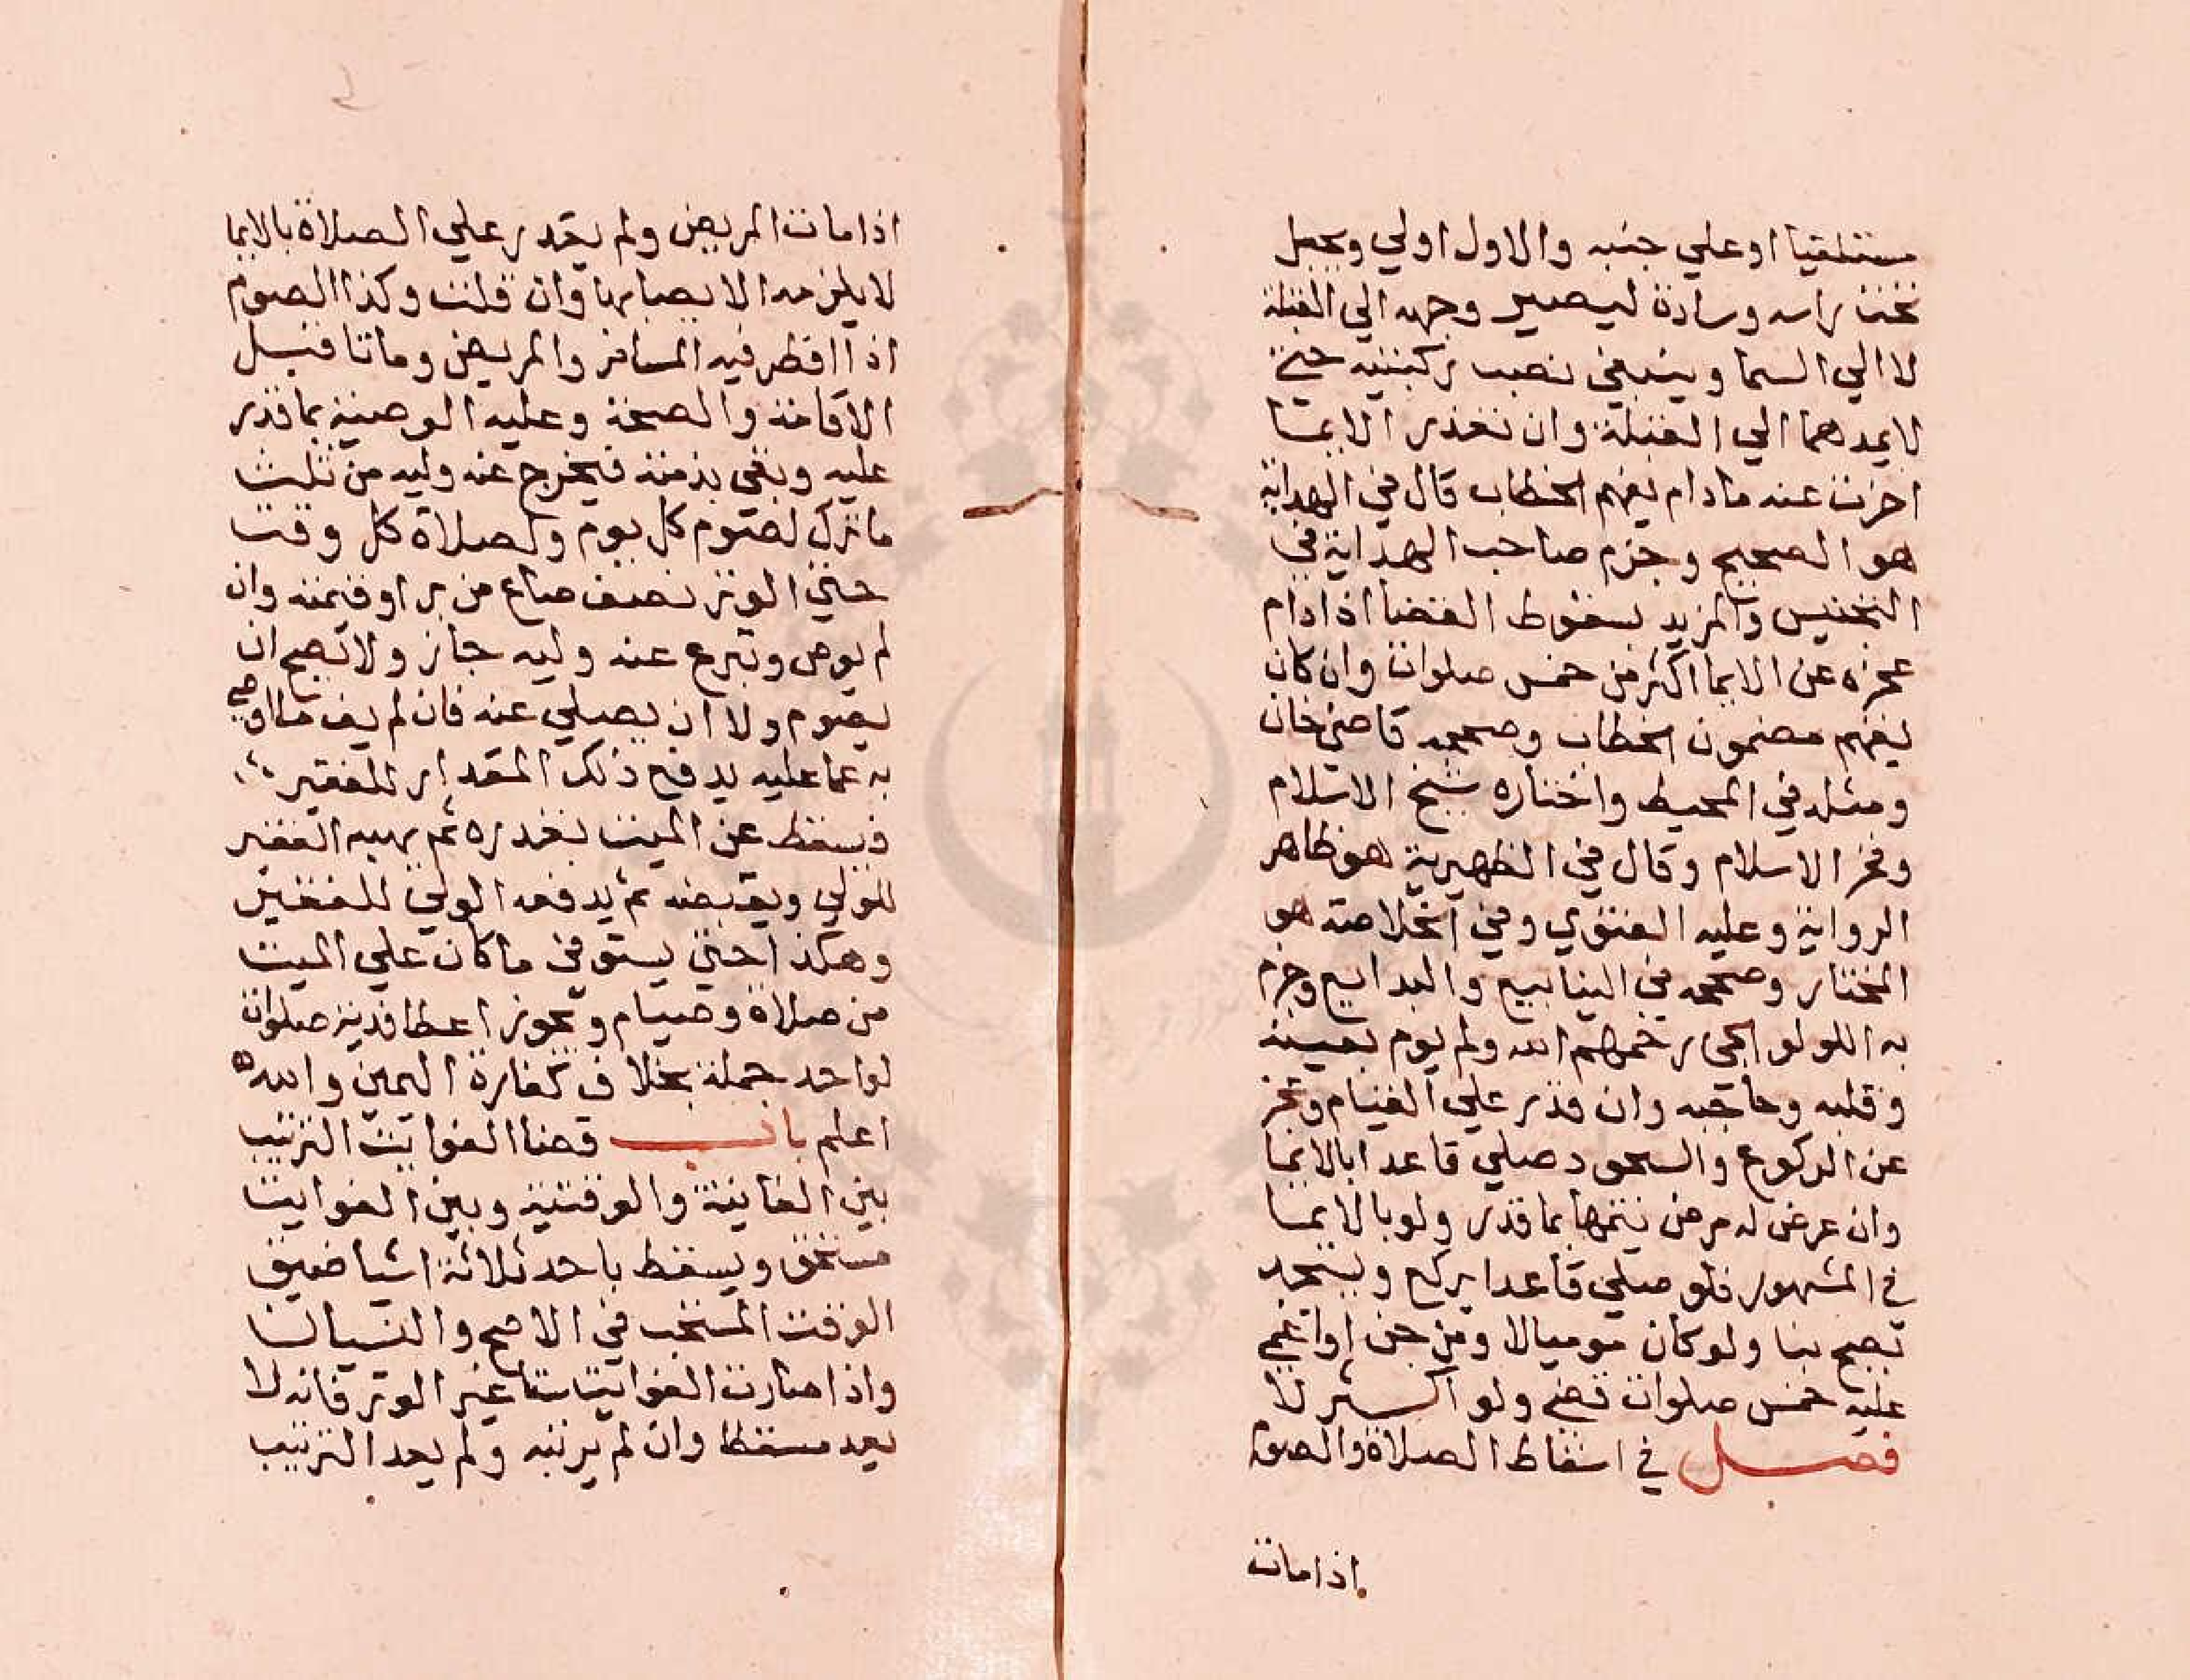 مستلقيا او علي جنبه والاول اولي ويجعل
تحت راسه وسادة ليصير وجهه الي القبلة
لا الي السما وينبغي نصب ركبتيه حتي
لا يمدهما الي القبلة وان تعذر الايما
اخرت عنه ما دام يفهم الخطاب قال في الهداية
هو الصحيح وجزم صاحب الهداية في
التجنيس والمزيد بسقوط القضا اذا دام
عجزه عن الايما اكثر من خمس صلوات وان كان
يفهم مضمون الخطاب وصححه قاضي خان
ومثله في المحيط واختاره شيخ الاسلام
وفخر الاسلام وقال في الظهيرية هو ظاهر
الرواية وعليه الفتوي وفي الخلاصة هو
المختار وصححه في الينابيع والبدايع وجزم
به اللولوالجي رحمهم الله ولم يوم بعينه
وقلبه وحاجبه وان قدر علي القيام وعجز
عن الركوع والسجود صلي قاعدا بالايما
وان عرض له مرض يتمها بما قدر ولو بالايما
في المشهور فلو صلي قاعدا يركع ويسجد
تصح بنا ولو كان موميا لا ومن جن او اغمي
عليه خمس صلوات قضي ولو اكثر لا
فصل في اسقاط الصلاة والصوم
اذا مات
اذا مات المريض ولم يقدر علي الصلاة بالايما
لا يلزمه الايصا بها وان قلت وكذا الصوم
اذا افطر فيه المسافر والمريض وماتا قبل
الاقامة والصحة وعليه الوصية بما قدر
عليه وبقي بذمته فيخرج عنه وليه من ثلث
ما ترك لصوم كل يوم ولصلاة كل وقت
حتي الوتر نصف صاع من بر او قيمته وان
لم يوص وتبرع عنه وليه جاز ولا تصح ان
يصوم ولا ان يصلي عنه فان لم يف ما اوصي
به عما عليه يدفع ذلك المقدار للفقير
فيسقط عن الميت بقدره ثم يهبه الفقير
للولي ويقبضه ثم يدفعه الولي للفقير
وهكذا حتي يستوفي ما كان علي الميت
من صلاة وصيام ويجوز اعطا فدية صلوات
لواحد جملة بخلاف كفارة اليمين والله
اعلم باب قضا الفوايت الترتيب
بين الفايتة والوقتية وبين الفوايت
مستحق ويسقط باحد ثلاثة اشيا ضيق
الوقت المستحب في الاصح والنسيان
واذا صارت الفوايت ستا غير الوتر فانه لا
يعد مسقطا وان لم يرتبه ولم يعد الترتيب